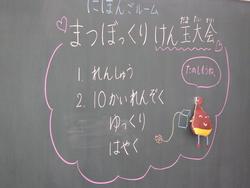 にほんごルーム
まつぼっくり けん玉大会
だまたいかい
たのしもうね
1. れんしゅう
2. 10かいれんぞく
ゆっくり
はやく